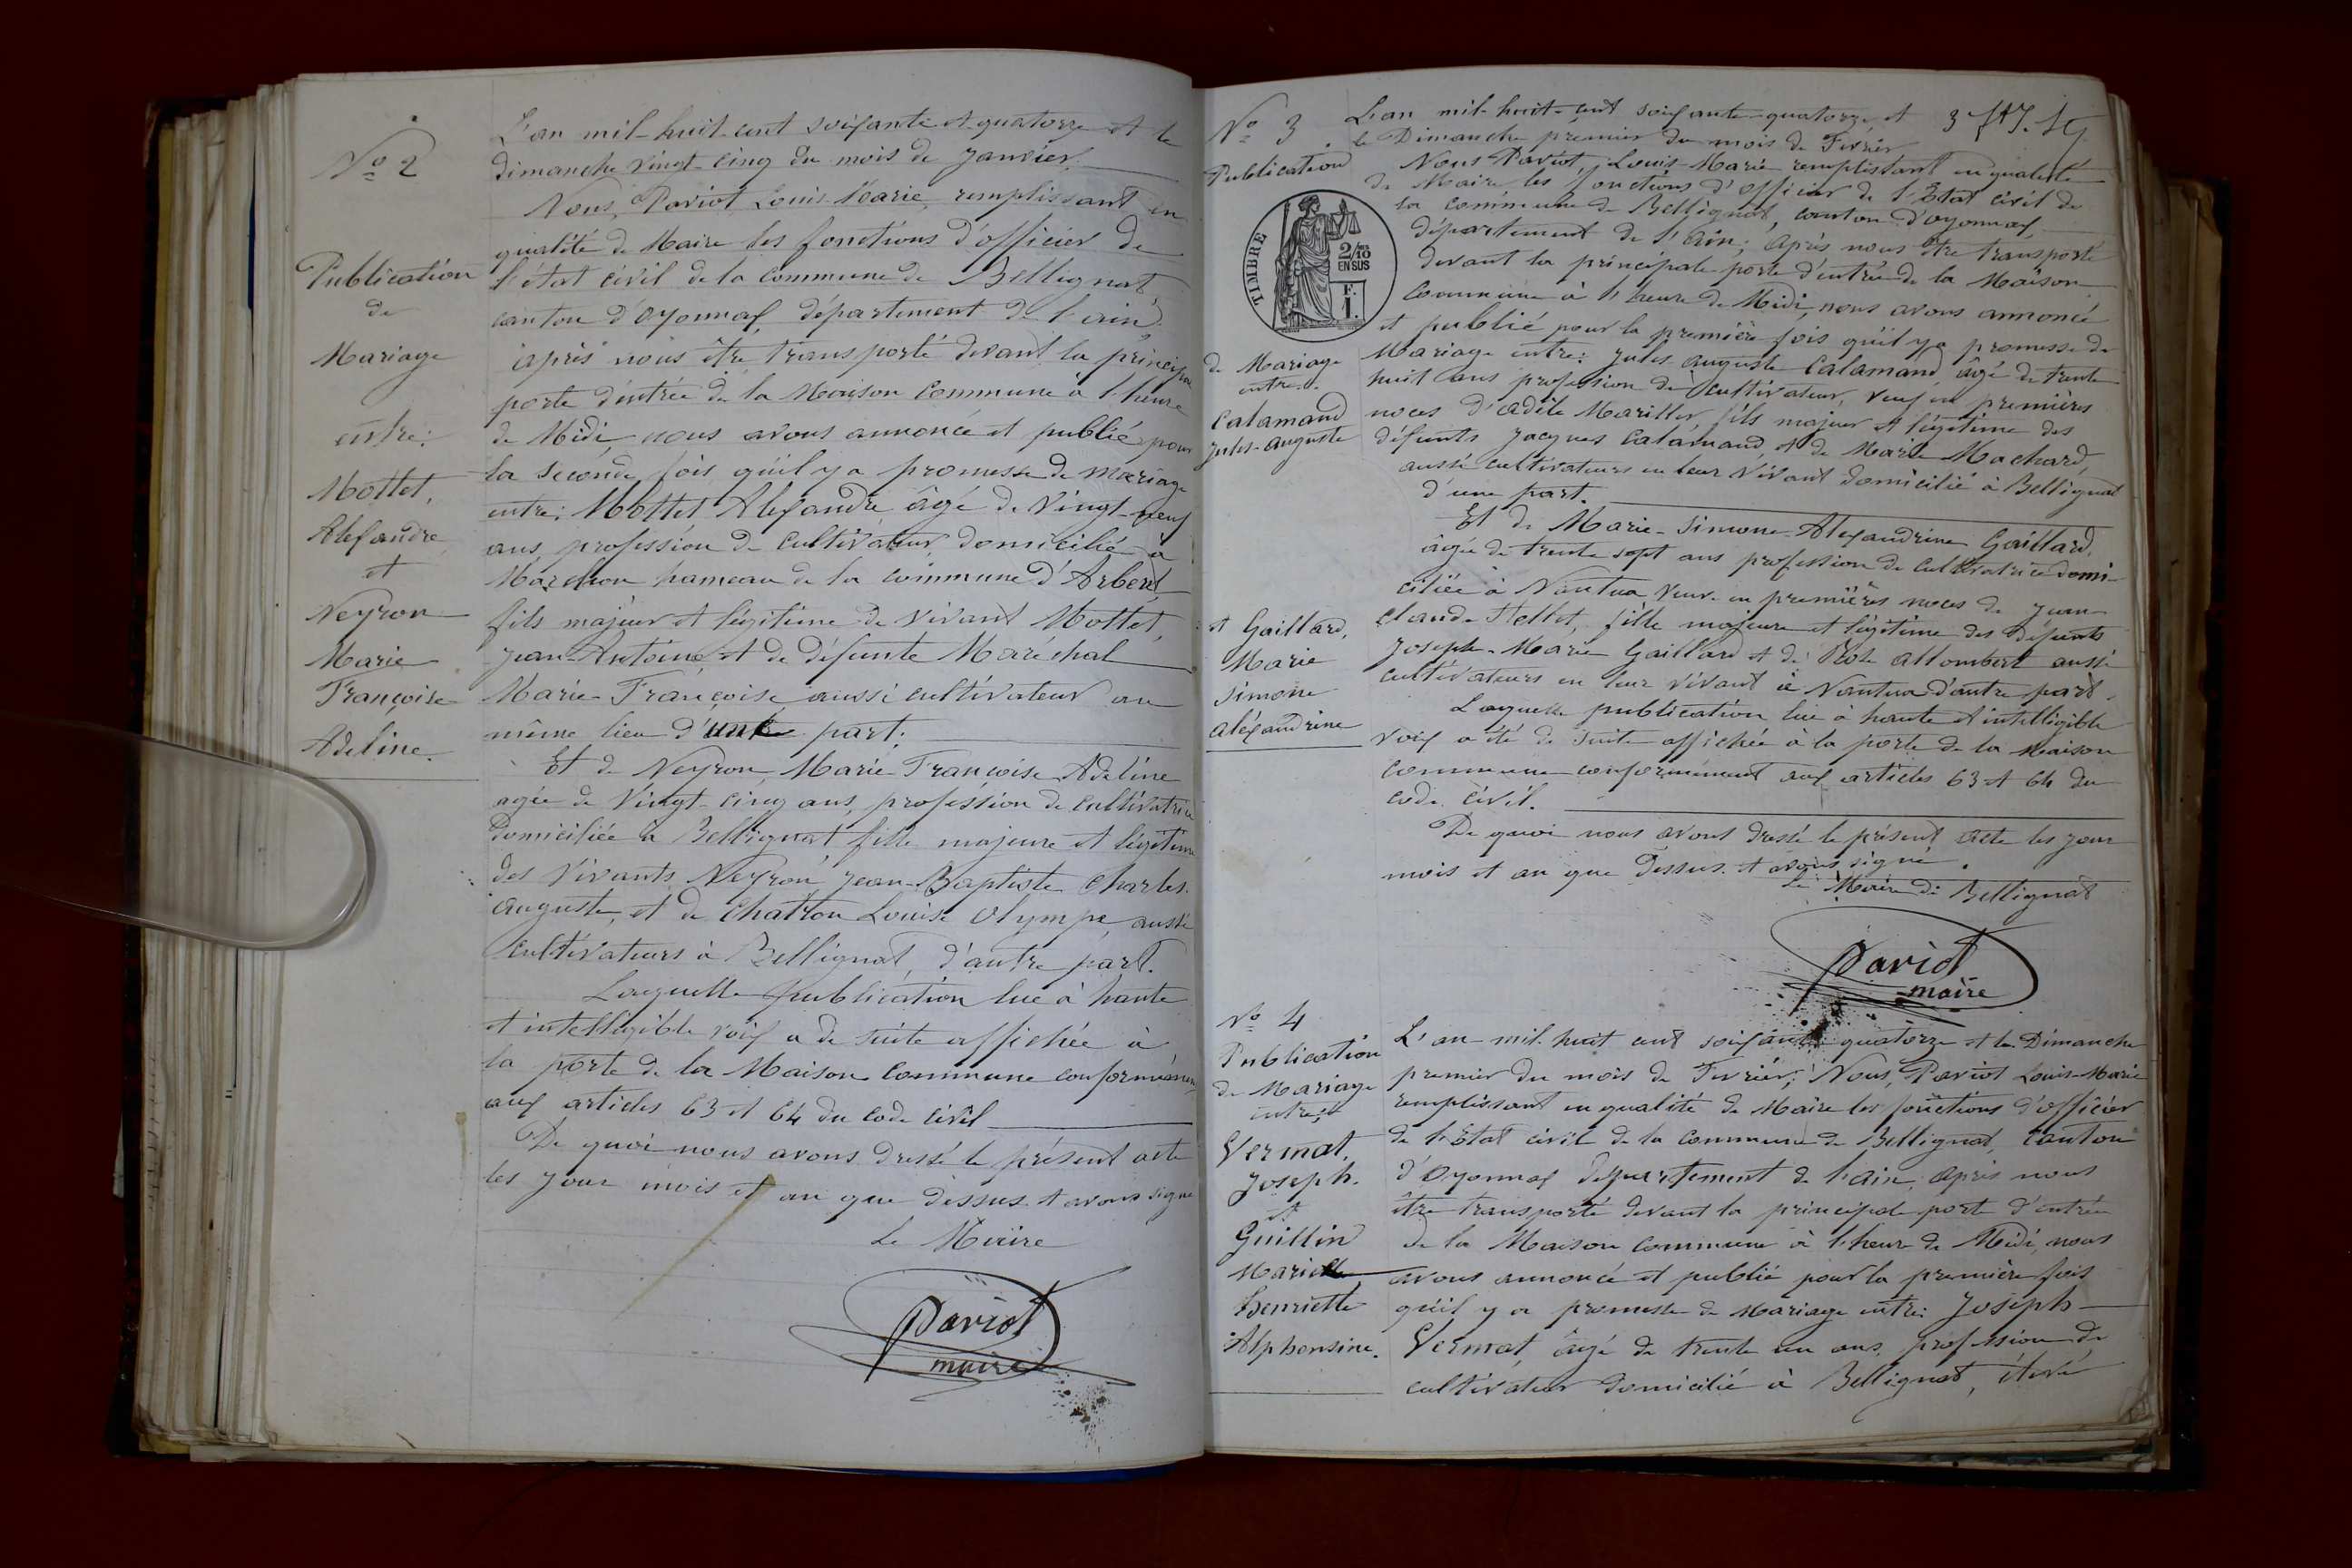 N° 2
Publication
de
Mariage
entre:
Mottet,
Alexandre
et
Neyron
Marie
Françoise
Adeline.
L'an mil-huit-cent soixante et quatorze et le
dimanche vingt-cinq du mois de Janvier.
Nous, Pariot Louis-Marie, remplissant en
qualité de Maire les fonctions d'officier de
l'état civil de la commune de Bellignat,
canton d'Oyonnax, département de l'ain
après nous être transporté devant la principale
porte d'entrée de la Maison Commune à l'heure
de Midi, nous avons annoncé et publié pour
la seconde fois qu'il y a promesse de mariage
entre: Mottet Alexandre âgé de Vingt-neuf
ans, profession de Cultivateur, domicilié à
Marchon hameau de la commune d'Arbent
fils majeur et légitime de vivant Mottet,
Jean-Antoine et de défunte Maréchal
Marie-Françoise aussi cultivateur au
même lieu d'une part;
Et de Neyron, Marie-Françoise Adeline
agée de Vingt-cinq ans, profession de cultivatrice
domiciliée à Bellignat fille majeure et légitime
des Vivants Neyron Jean-Baptiste Charles-
Auguste, et de Chatton Louise Olympe, aussi
Cultivateurs à Bellignat, d'autre part.
Laquelle publication lue à haute
et intelligible voix a de suite affichée à
la porte de la Maison Commune conformément
aux articles 63 et 64 du Code Civil
De quoi nous avons dressé le présent acte
les jour mois et an que dessus et avons signé
Le Maire
Pariot
maire
N° 3
Publication
TIMBRE
2/10
EN SUS
F.
1.
de Mariage
entre:
Calamand
Jules-Auguste
et Gaillard,
Marie
Simone
Aléxandrine
L'an mil-huit-cent soixante-quatorze, et
le Dimanche premier du mois de Février
Nous Pariot, Louis-Marie remplissant en qualité
de Maire les fonctions d'officier de l'Etat civil de
la commune de Bellignat, canton d'oyonnax,
département de l'Ain; Après nous être transporté
devant la principale porte d'entrée de la Maison
Commune à l'heure de Midi, nous avons annoncé
et publié pour la première fois qu'il y a promesse de
Mariage entre: Jules Auguste Calamand, âgé de trente
huit ans profession de Cultivateur, veuf en premières
noces d'Adèle Marillier, fils majeur et légitime des
défunts Jacques Calamand, et de Marie Machard,
aussi cultivateurs en leur vivant domicilié à Bellignat
d'une part.
Et de Marie-Simone-Alexandrine Gaillard,
âgée de trente sept ans profession de Cultivatrice domi-
ciliée à Nantua veuve en premières noces de Jean-
Claude Hellet, fille majeure et légitime des défunts
Joseph-Marie Gaillard et de Rose Allombert aussi
cultivateurs en leur vivant à Nantua d'autre part.
Laquelle publication lue à haute et intelligible
voix a été de suite affichée à la porte de la Maison
Commune conformément aux articles 63 et 64 du
code civil.
De quoi nous avons dressé le présent acte les jour
mois et an que dessus et avons signé.
Le Maire de Bellignat
Pariot
maire
N° 4
Publication
de Mariage
entre:
Vermat,
Joseph.
et
Guillin
Marie
henriette
Alphonsine.
L'an mil huit cent soixante quatorze et le Dimanche
premier du mois de Février; Nous, Pariot Louis-Marie
remplissant en qualité de Maire les fonctions d'officier
de l'Etat civil de la commune de Bellignat, canton
d'Oyonnax département de l'ain, après nous
être transporté devant la principale porte d'entrée
de la Maison commune à l'heure de Midi, nous
avons annoncé et publié pour la première fois
qu'il y a promesse de Mariage entre: Joseph
Vermat, âgé de trente un ans, profession de
cultivateur domicilié à Bellignat,